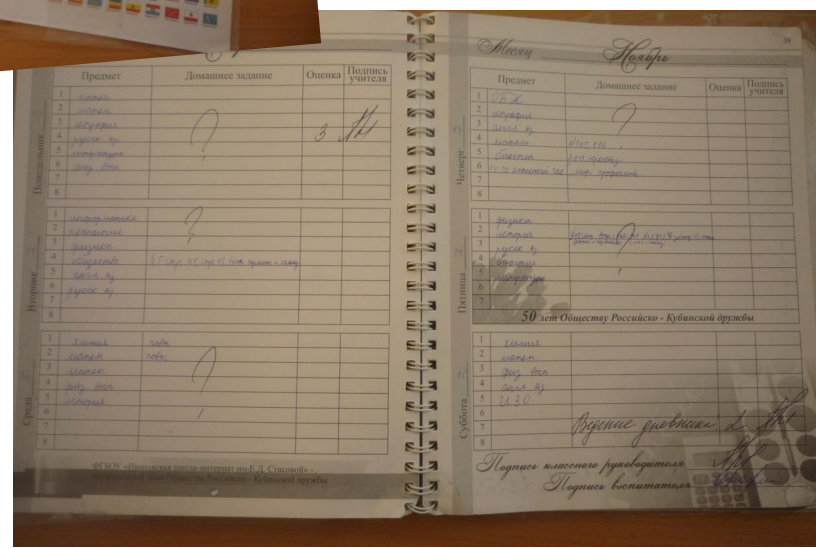 Предмет Домашнее задание Оценка Подпись учителя
Понедельник
1 матем
2 матем
3 география
4 русск яз. 3
5 литература
6 физ восп
7
8
Вторник
1 информатика
2
3 физика
4 общество §5 стр. 42
5 англ яз
6 русск яз
7
8
Среда
1 химия повт.
2 матем повт.
3 матем
4 физ восп
5 история
6
7
8
ФГБОУ «Ивановская школа-интернат им.Е.Д. Стасовой» -
Общества Российско - Кубинской дружбы
Месяц Ноябрь
Предмет Домашнее задание Оценка Подпись учителя
Четверг
1 ОБЖ
2 география
3 англ яз
4 матем
5 биология
6 классный час мир профессий
7
8
Пятница
1 физика
2 история
3 русск яз
4
5 литература
6
7
50 лет Обществу Российско - Кубинской дружбы
Суббота
1 химия
2 матем
3 физ восп
4 англ яз
5 ИЗО
6
7 Ведение дневника 2
8
Подпись классного руководителя
Подпись воспитателя